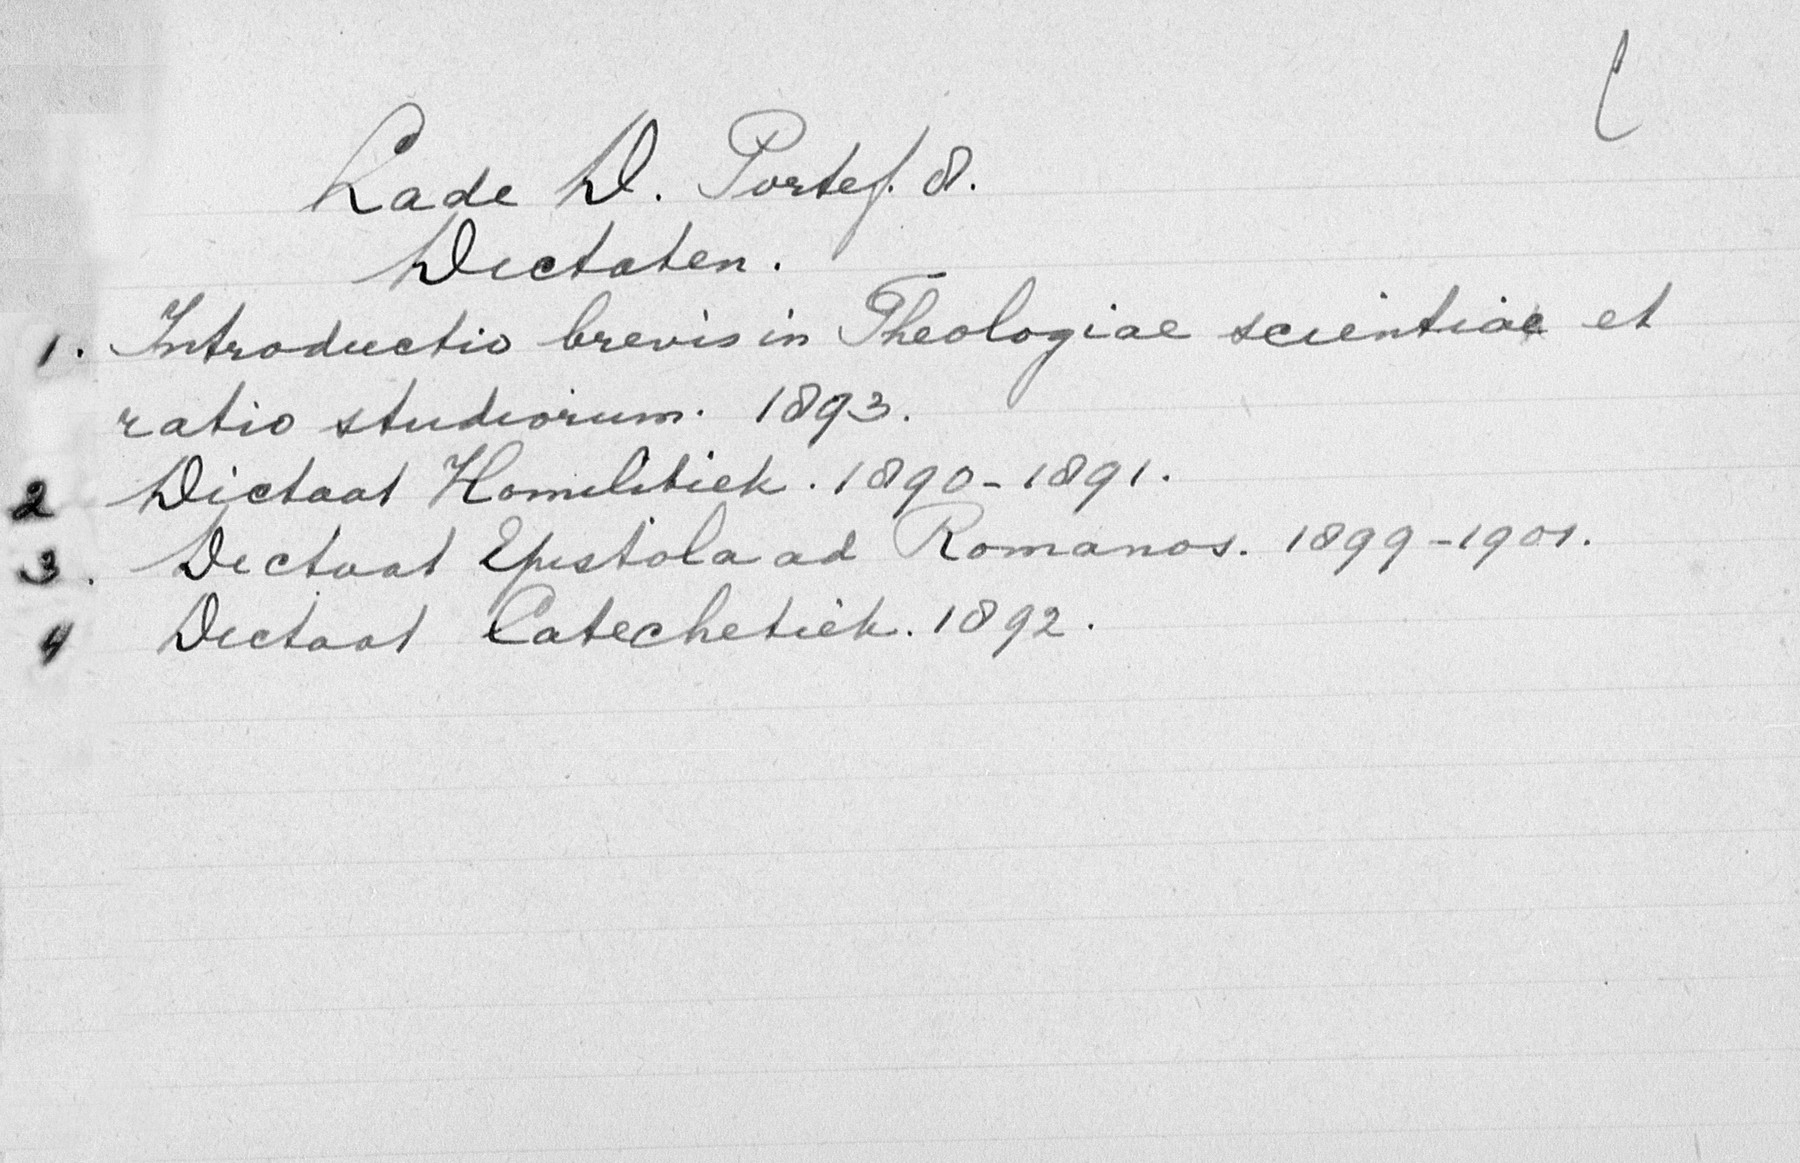 Lade D. Portef. 8.
Dictaten.
1. Introductio brevis in Theologiae scientiae et
ratio studiorum. 1893.
2 Dictaat Homiletiek. 1890-1891.
3. Dictaat Epistola ad Romanos. 1899-1901.
4 Dictaat Catechetiek. 1892.